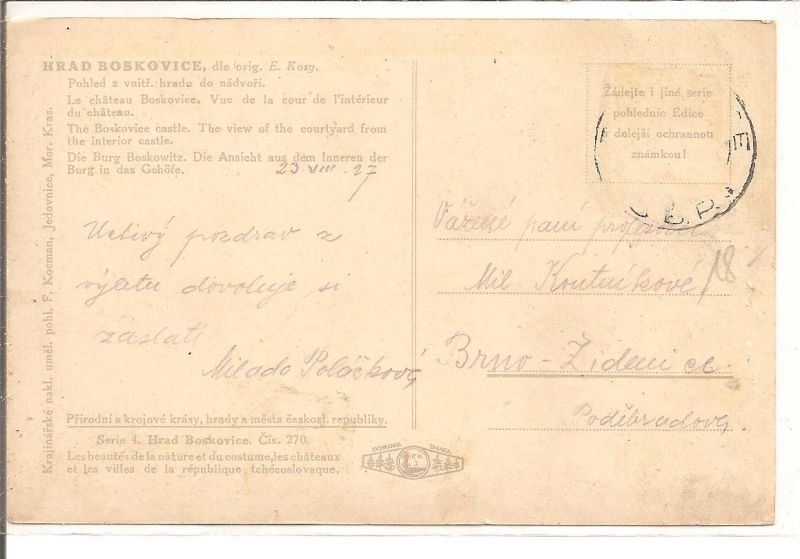 HRAD BOSKOVICE, dle orig. E. Kosy.
Pohled z vnitř. hradu do nádvoří.
Le château Boskovice. Vue de la cour de l'intérieur
du château.
The Boskovice castle. The view of the courtyard from
the interior castle.
Die Burg Boskowitz. Die Ansicht aus dem Inneren der
Burg in das Gehöfe.
23.VIII.27
Uctivý pozdrav z
výletu dovoluje si
zaslati
Milada Poláčková
Přírodní a krojové krásy, hrady a města českosl. republiky.
Serie 4. Hrad Boskovice. Čís. 270.
Les beautés de la nature et du costume, les châteaux
et les villes de la république tchécoslovaque.
Krajinářské nakl. uměl. pohl. F. Kocman, Jedovnice, Mor. Kras.
OCHRANNÁ ZNÁMKA
Žádejte i jiné serie
pohlednic Edice
s dolejší ochrannou
známkou!
Vážené paní
Mil. Koutníkové
18
Brno - Židenice
Poděbradova